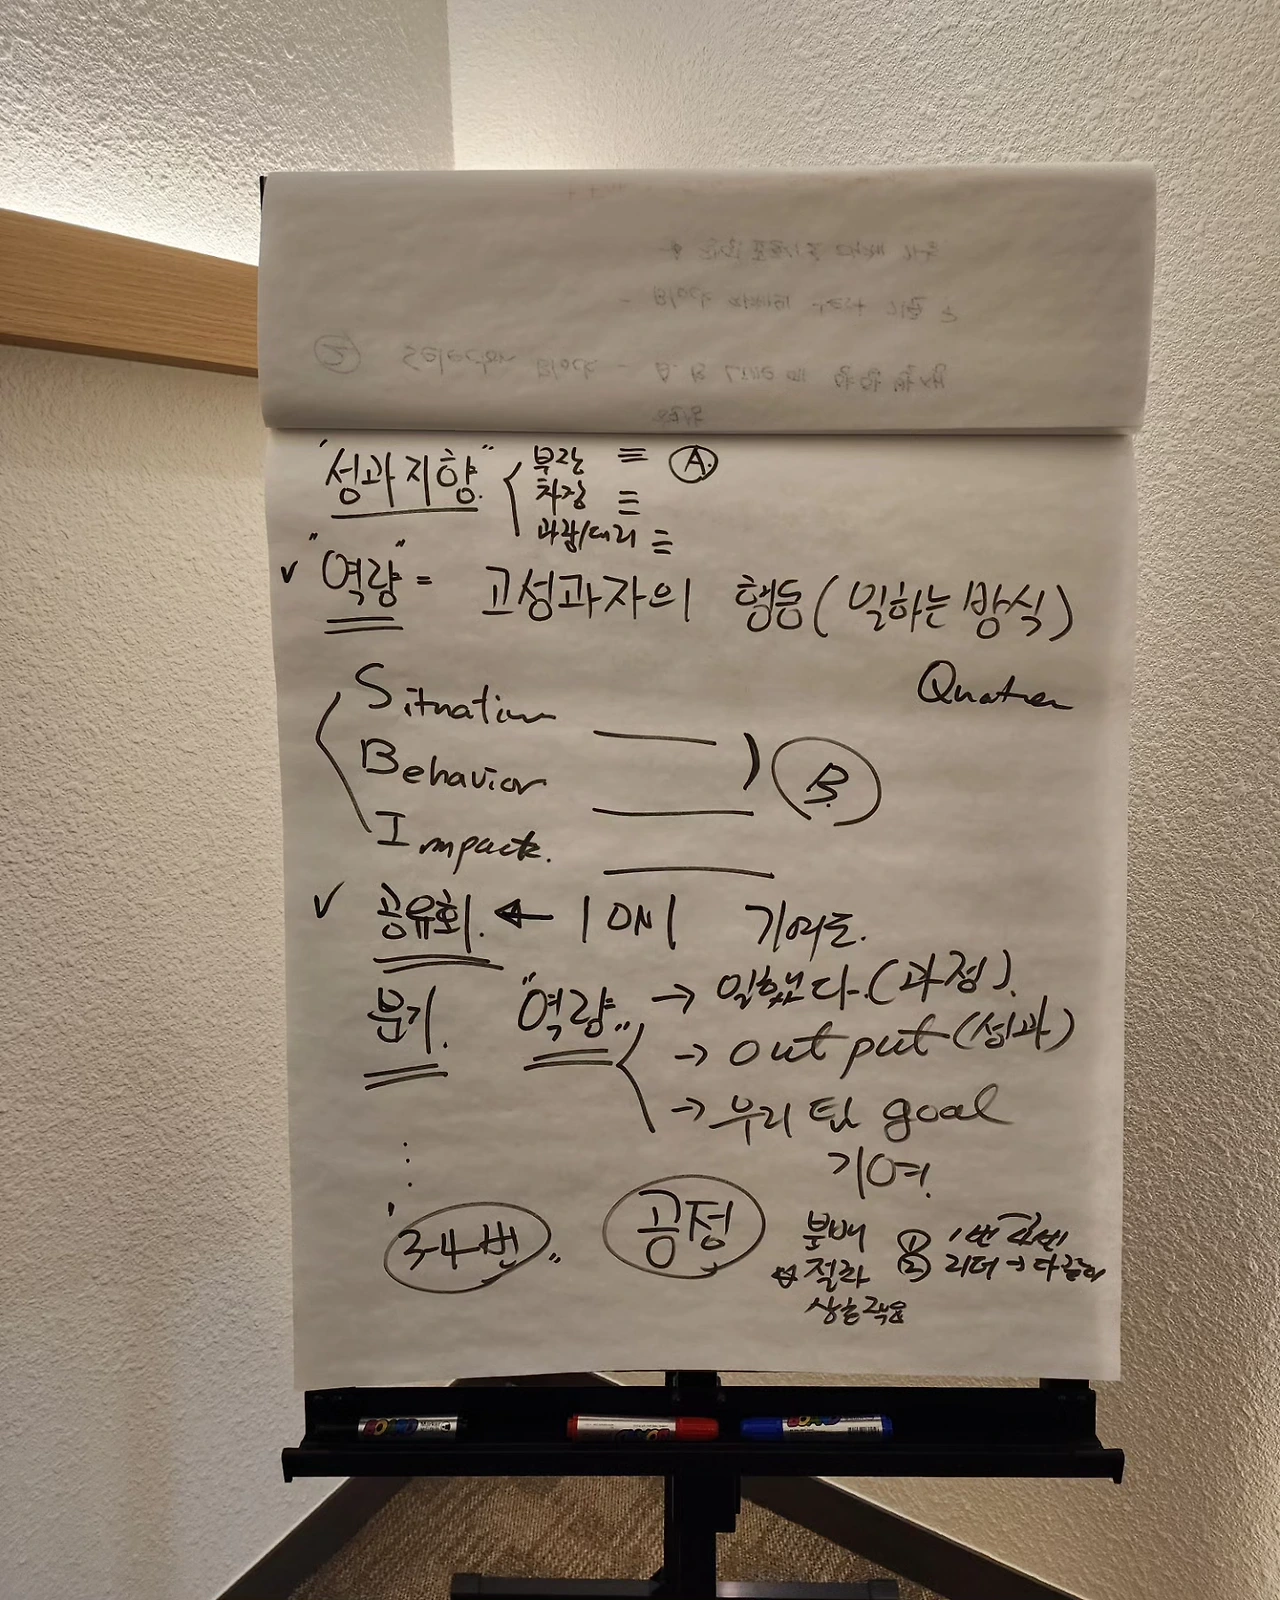 "성과지향" 부장 A.
차장
과장/대리
✓ "역량" = 고성과자의 행동(일하는 방식)
Situation
Behavior B.
Impact.
✓ 공유회. ← 1 ON 1 기여도.
분기. "역량" → 일했다.(과정).
→ output(성과)
→ 우리 팀 goal
기여.
3~4번.. 공정 분배 ①
절차 ② 리더 →
상호작용
BOARD
BOARD
BOARD